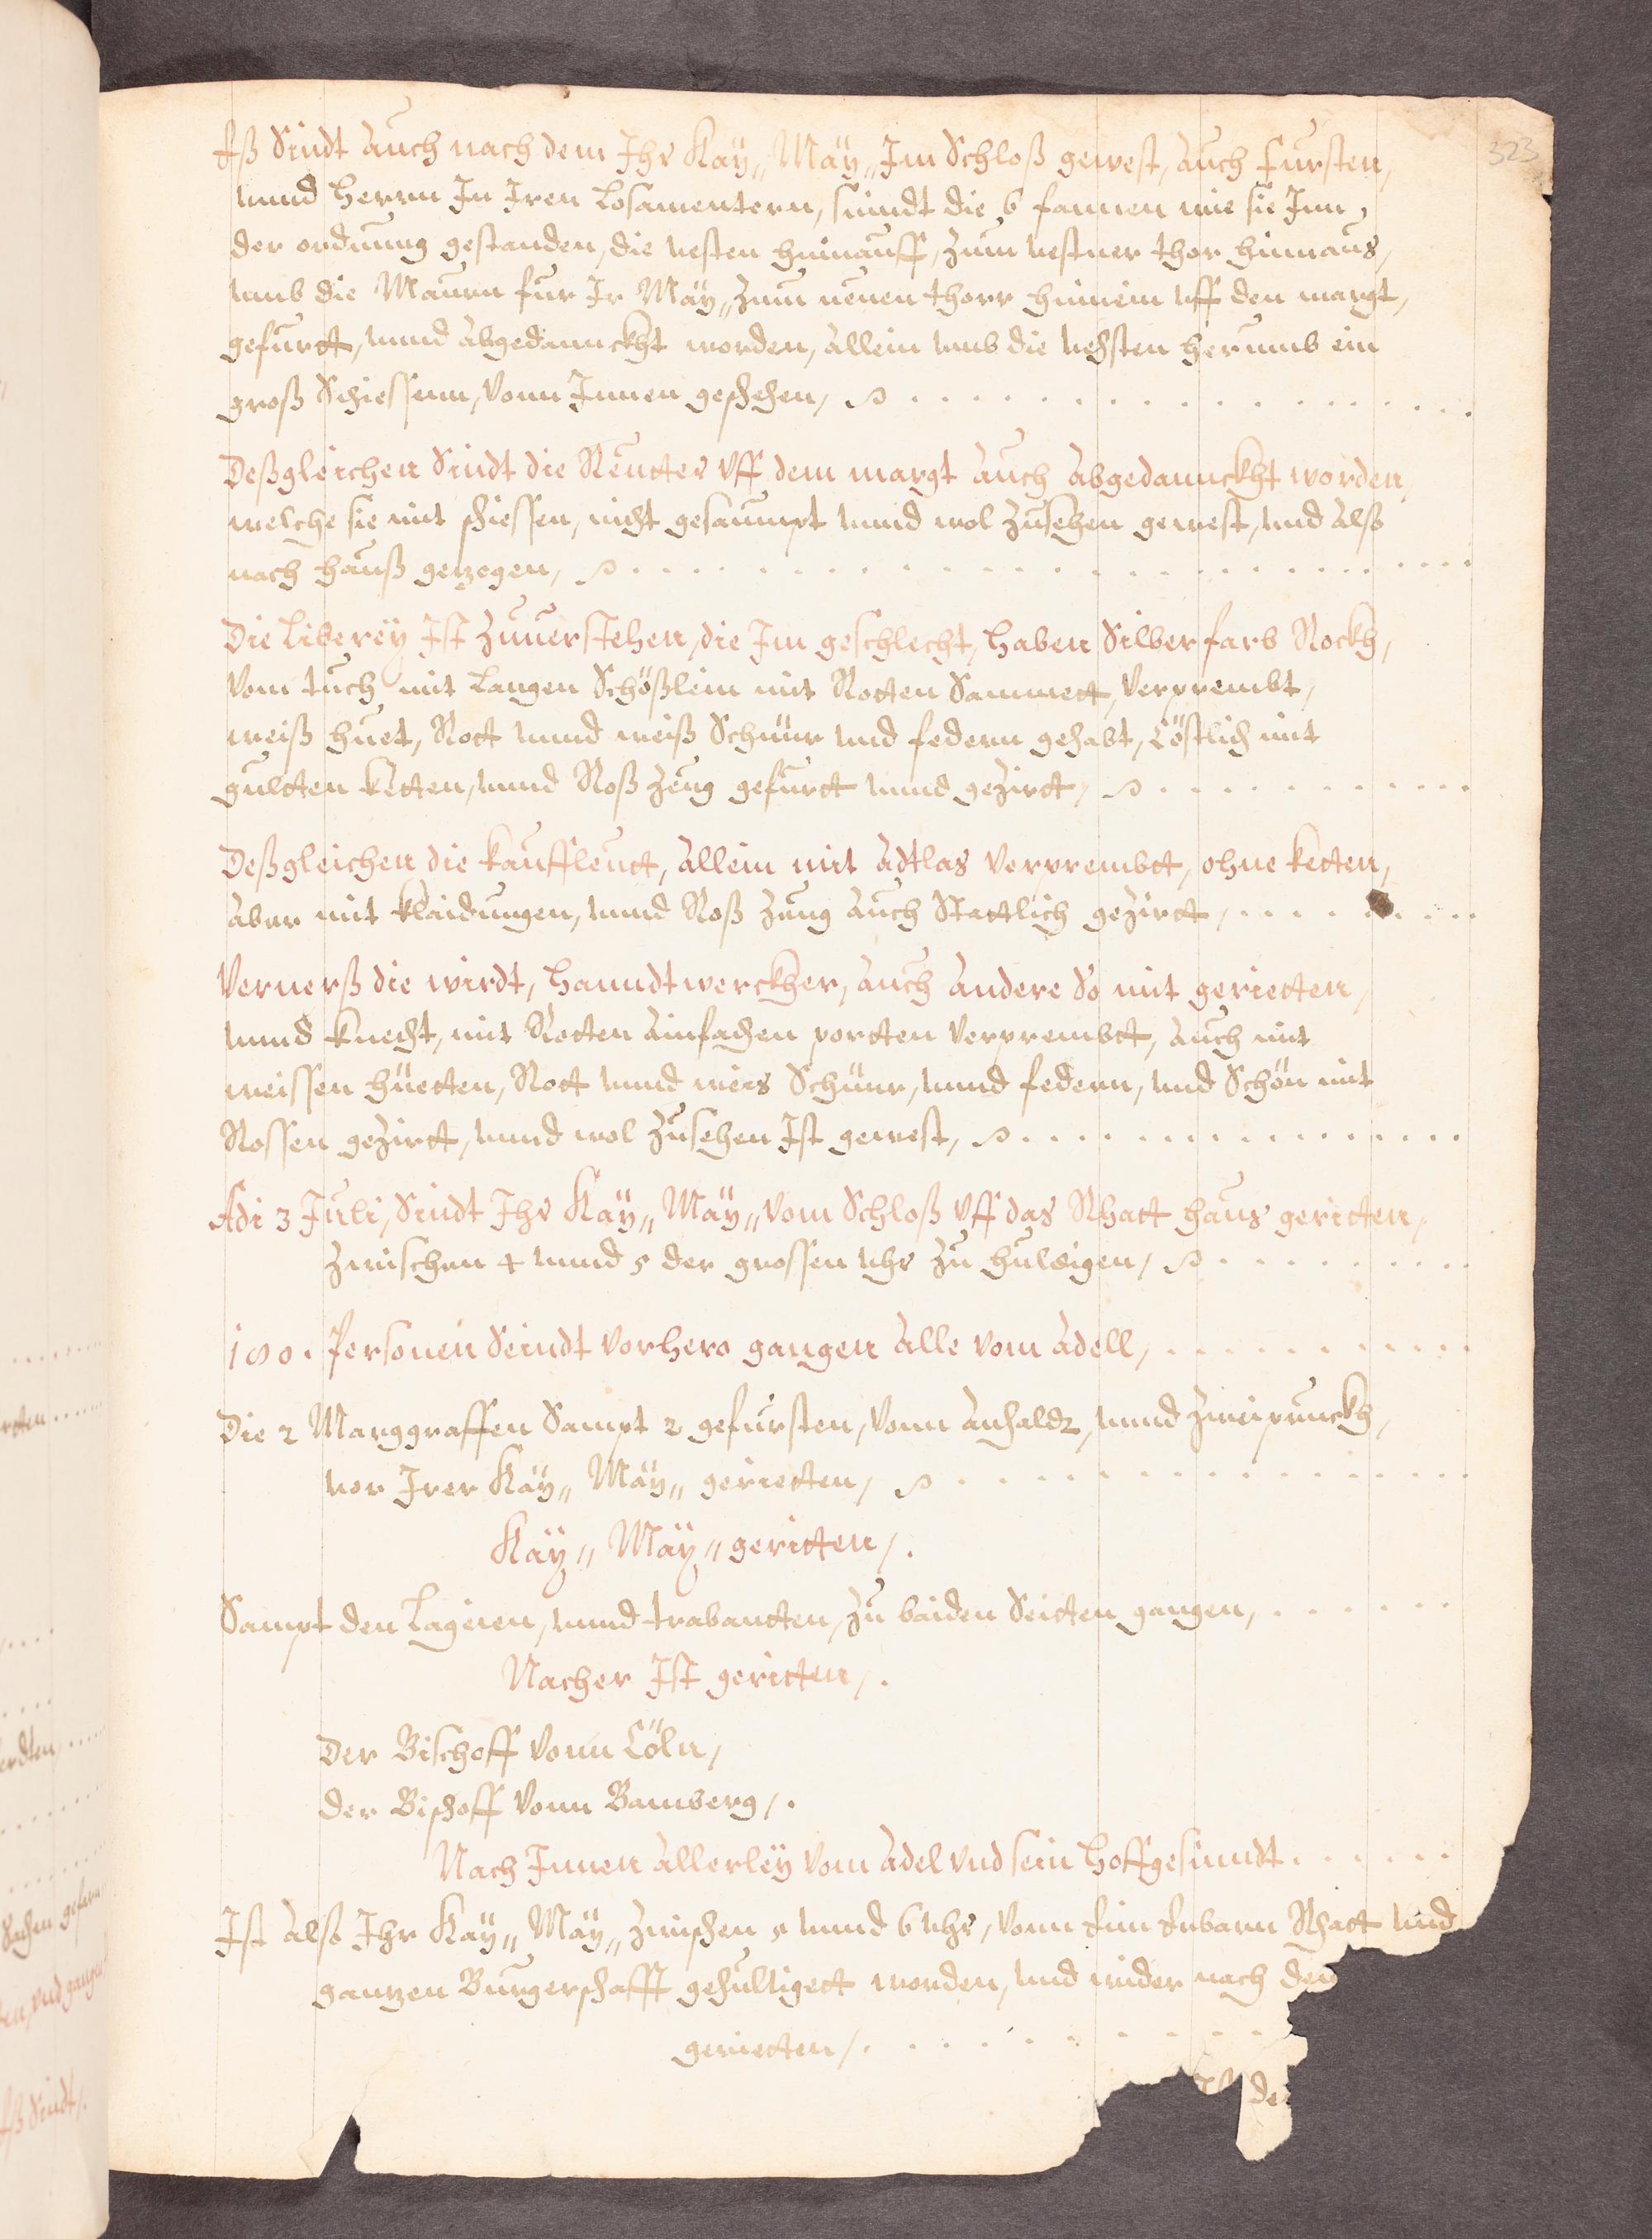 323
Eß Sindt Auch nach dem Ihr Kaÿ„ Maÿ„ Im Schloß gewest, Auch Fursten,
vnnd Herrn In Iren Losamentern, sindt die 6 fannen wie sie Inn
der ordnung gestanden, die vesten hinnauff, zum vestner thor hinnaus,
vmb die Maurn fur Ir Maÿ„ zum neuen thorr hinnein vff den margt,
gefurtt, vnnd Abgedannckht worden, Allein vmb die vehsten herumb ein
groß Schiessenn, vonn Innen geschehen,
Deßgleichen Sindt die Reutter vff dem margt Auch Abgedannckht worden,
welche sie mit schiessen, nicht gesaumpt vnnd wol zusehen gewest, vnd Alß
nach hauß gezogen,
Die Liberëÿ Ist zuuerstehen, die Im geschlecht, haben Silberfarb Rockh,
vom tuch mit Langen Schößlein mit Rotten Sammett, verprembt,
weiß huet, Rott vnnd weiß Schnür vnd federn gehabt, Cöstlich mit
gultten ketten, vnnd Roß zeug gefurtt vnnd gezirtt,
Deßgleichen die kauffleutt, Allein mit Adtlas verprembtt, ohne ketten,
Aber mit klaidungen, vnnd Roß zeug Auch Stattlich gezirtt,
Vernerß die wirdt, hanndtwerckher, Auch Andere So mit gerietten,
vnnd knecht, mit Rotten Ainfachen portten verprembtt, Auch mit
weissen hüetten, Rott vnnd weis Schnür, vnnd federn, vnd Schön mit
Rossen gezirtt, vnnd wol zusehen Ist gewest,
Adi 3 Juli, Sindt Ihr Kaÿ„ Maÿ„ vom Schloß vff das Rhatt haus geritten,
zwischen 4 vnnd 5 der grossen vhr zu huldigen,
100. Personen Seindt vorhero gangen Alle vom Adell,
Die 2 Marggraffen Sampt 2 gefursten, vonn Anhaldt, vnnd zweiprunckh,
vor Irer Kaÿ„ Maÿ„ gerietten,
Kaÿ„ Maÿ„ geritten,.
Sampt den Lageien, vnnd trabantten, zu baiden Seitten gangen,
Nacher Ist geritten,.
Der Bischoff vonn Cöln,
der Bischoff vonn Bamberg,.
Nach Innen Allerleÿ vom Adel vnd sein Hoffgesinndt
Ist Alß Ihr Kaÿ„ Maÿ„ zwischen 5 vnnd 6 vhr, vonn Eim Erbarn Rhatt vnd
gantzen Burgerschafft gehultigett worden, vnd wider nach den
gerietten,